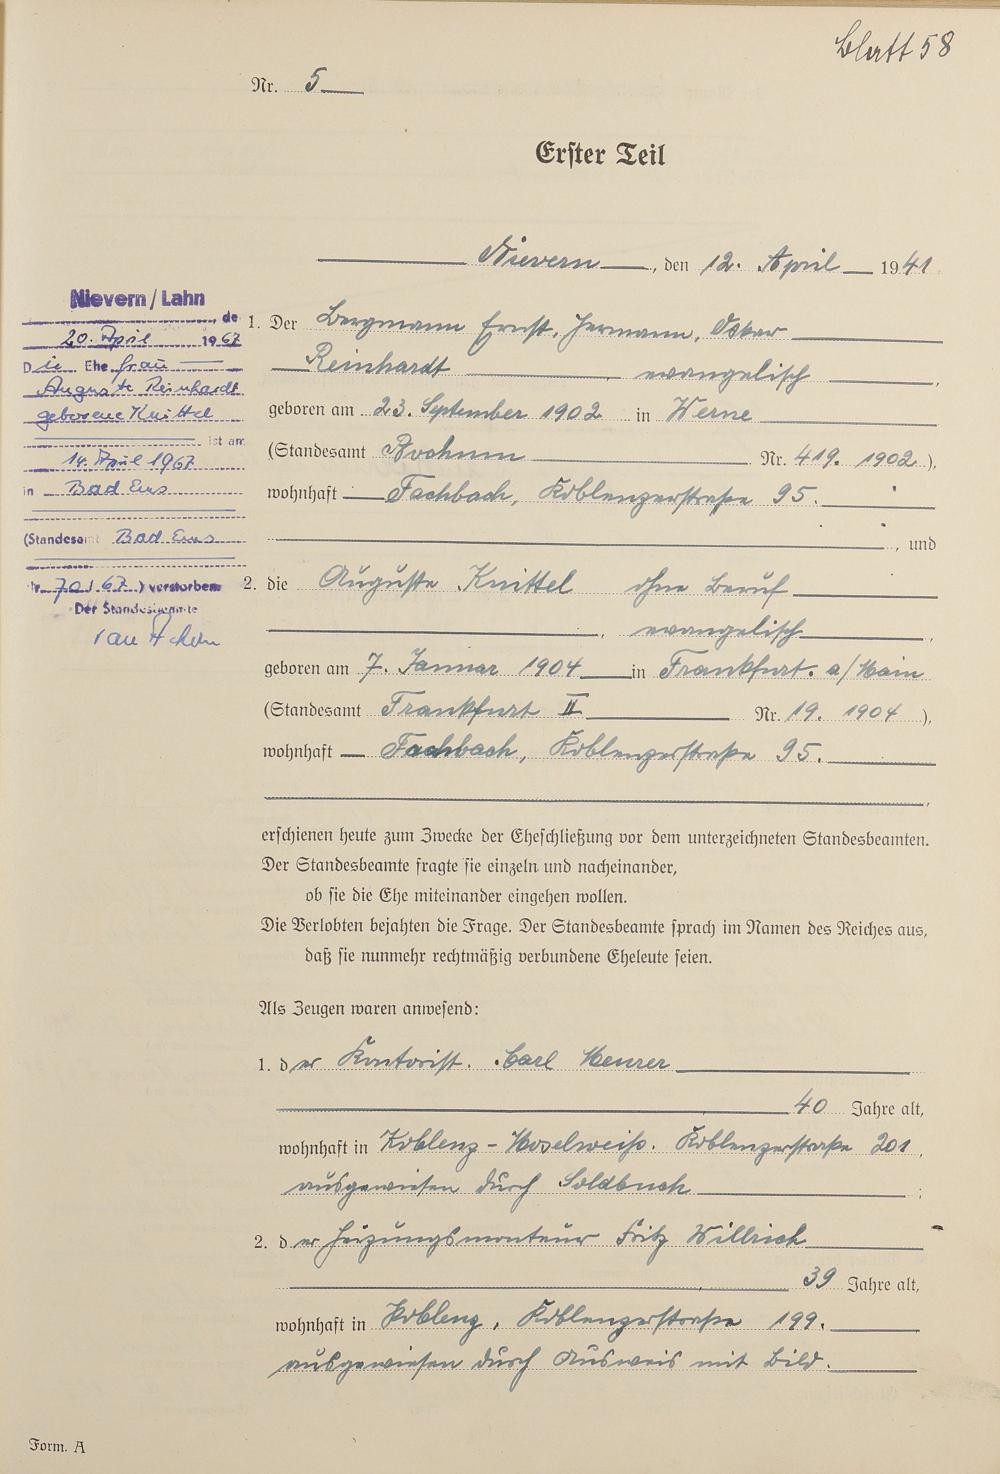 Blatt 58
Nr. 5
Erster Teil
Nievern, den 12. April 1941
Nievern / Lahn
, de
20. April 1967
Die Ehefrau
Auguste Reinhardt
geborene Knittel
ist am
14. April 1967
in Bad Ems
(Standesamt Bad Ems
Nr. 70/67) verstorben
Der Standesbeamte
1. Der Bergmann Ernst, Hermann, Oskar
Reinhardt evangelisch,
geboren am 23. September 1902 in Werne
(Standesamt Bochum Nr. 419. 1902),
wohnhaft Fachbach, Koblenzerstraße 95.
, und
2. die Auguste Knittel ohne Beruf
, evangelisch,
geboren am 7. Januar 1904 in Frankfurt. a/Main
(Standesamt Frankfurt II Nr. 19. 1904),
wohnhaft Fachbach, Koblenzerstraße 95.
,
erschienen heute zum Zwecke der Eheschließung vor dem unterzeichneten Standesbeamten.
Der Standesbeamte fragte sie einzeln und nacheinander,
ob sie die Ehe miteinander eingehen wollen.
Die Verlobten bejahten die Frage. Der Standesbeamte sprach im Namen des Reiches aus,
daß sie nunmehr rechtmäßig verbundene Eheleute seien.
Als Zeugen waren anwesend:
1. der Kontorist. Carl Meurer
40 Jahre alt,
wohnhaft in Koblenz - Moselweiß. Koblenzerstraße 201,
ausgewiesen durch Soldbuch;
2. der Heizungsmonteur Fritz Willrich
39 Jahre alt,
wohnhaft in Koblenz, Koblenzerstraße 199.
ausgewiesen durch Ausweis mit Bild.
Form. A